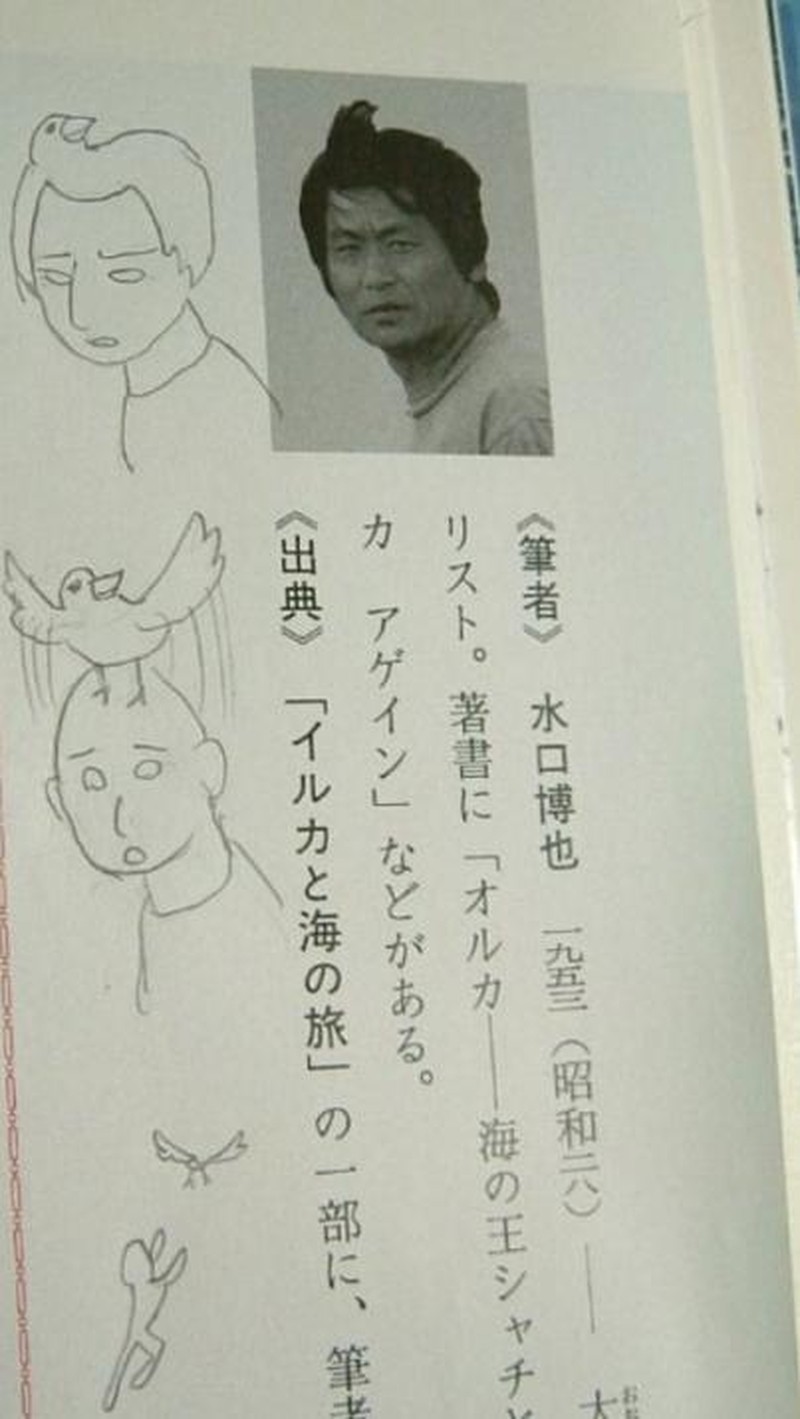 《筆者》 水口博也 一九五三（昭和二八）―― 大
おお
リスト。著書に「オルカ――海の王シャチと
カ アゲイン」などがある。
《出典》 「イルカと海の旅」の一部に、筆者